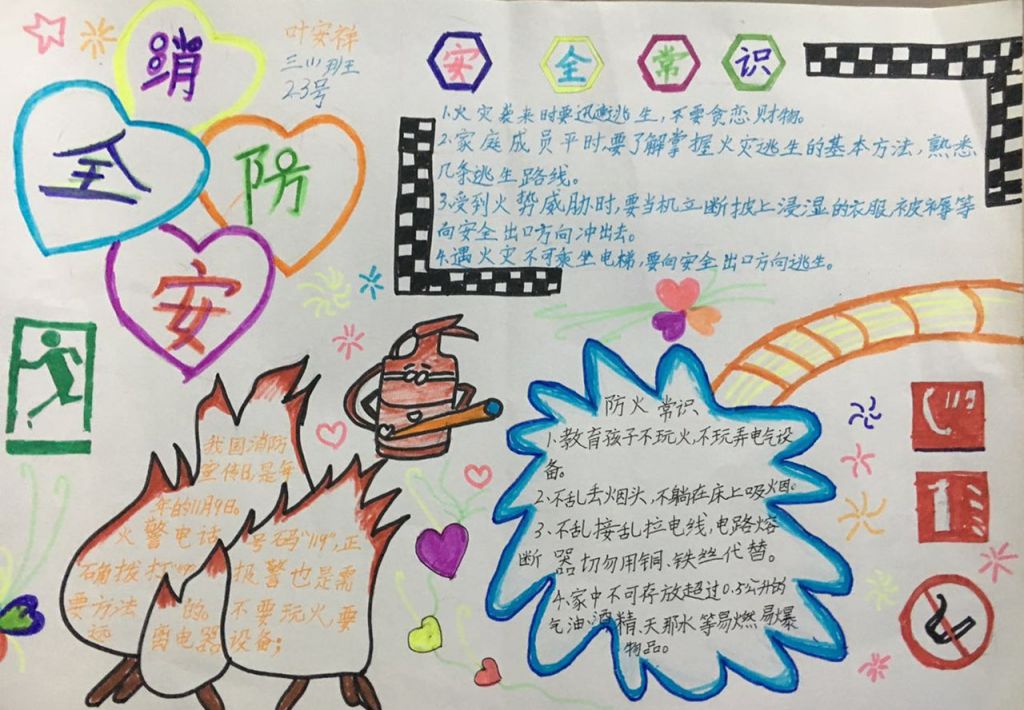 消
防
安
全
叶安祥
三(1)班
23号
安全常识
1.火灾袭来时要迅速逃生,不要贪恋财物。
2.家庭成员平时要了解掌握火灾逃生的基本方法,熟悉
几条逃生路线。
3.受到火势威胁时,要当机立断披上浸湿的衣服、被褥等
向安全出口方向冲出去。
4.遇火灾不可乘坐电梯,要向安全出口方向逃生。
我国消防
宣传日,是年
年的11月9日。
火警电话
号码"119",正
确拨打"
报警也是需
要方法的。不要玩火要
离电器设备;
防火常识
1.教育孩子不玩火,不玩弄电气设
备。
2.不乱丢烟头,不躺在床上吸烟。
3.不乱接乱拉电线,电路熔
断器切勿用铜、铁丝代替。
4.家中不可存放超过0.5公升的
气油、酒精、天那水等易燃易爆
物品。
119